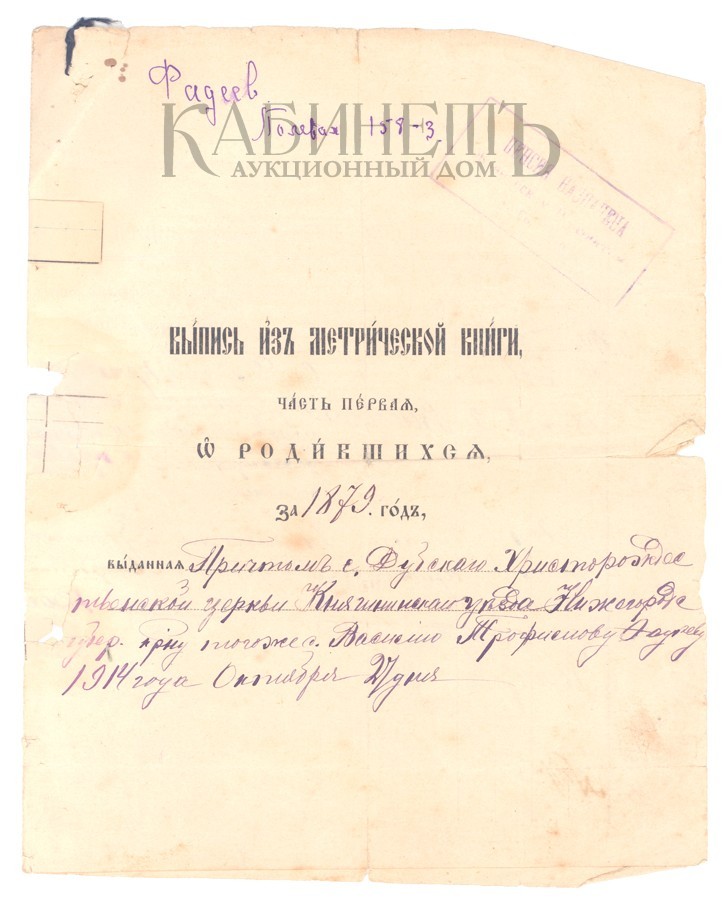 Фадеев
Полевая 158-13
КАБИНЕТЪ
АУКЦИОННЫЙ ДОМ
ПЕНСИЯ НАЗНАЧЕНА
ВЫ́ПИСЬ И҆ЗЪ МЕТРИ́ЧЕСКОЙ КНИ́ГИ,
ЧА́СТЬ ПЕ́РВАѦ,
Ѽ РОДИ́ВШИХСѦ,
ЗА 1879. ГО́ДЪ,
ВЫ́ДАННАѦ Причтомъ с. Дубскаго Христорождес
твенской церкви Княгининскаго уѣзда Нижегородс
губер. крну тогоже с. Василию Трофимову Фадееву
1914 года Октября 27 дня